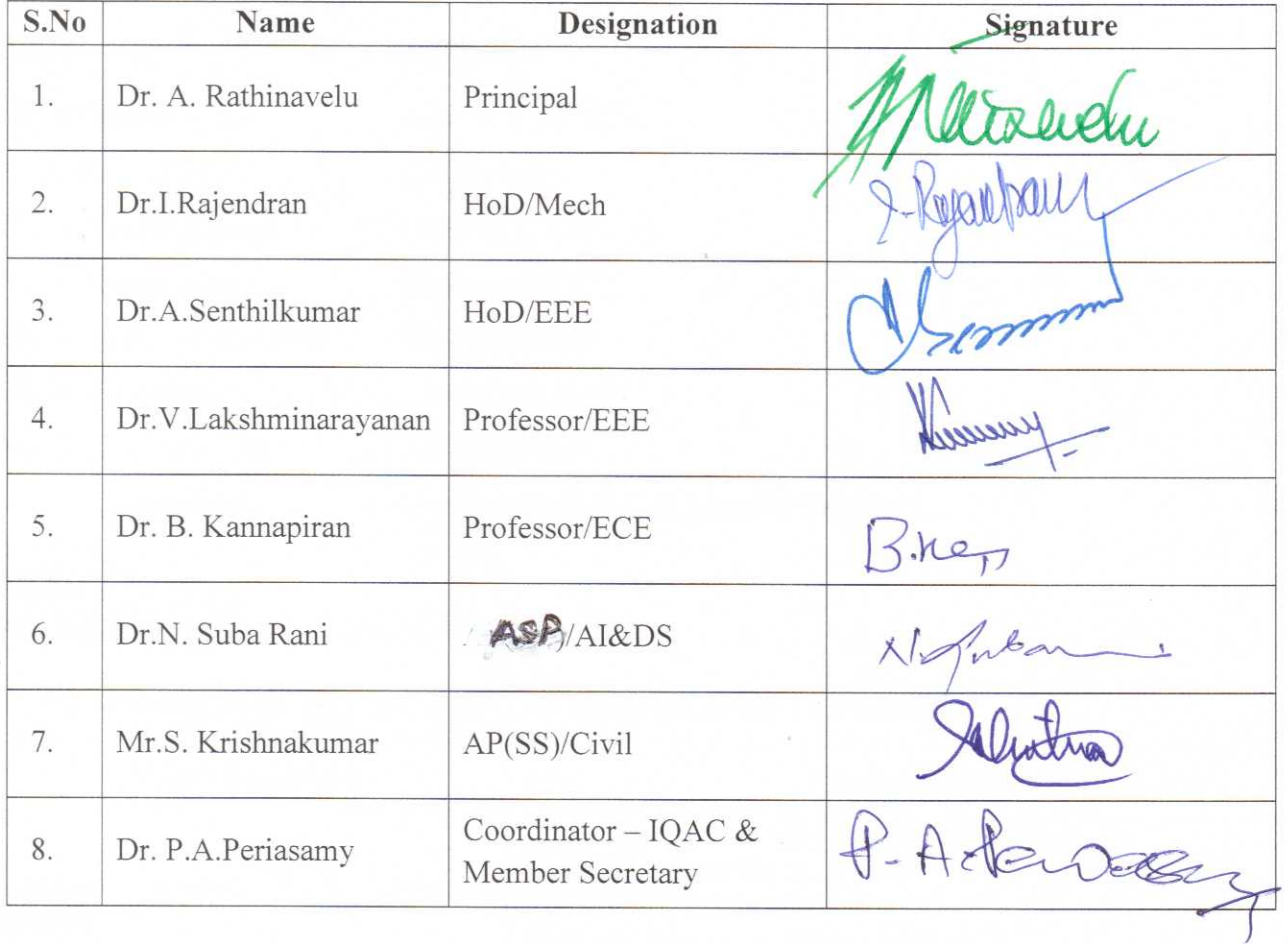 S.No Name Designation Signature
1. Dr. A. Rathinavelu Principal
2. Dr.I.Rajendran HoD/Mech
3. Dr.A.Senthilkumar HoD/EEE
4. Dr.V.Lakshminarayanan Professor/EEE
5. Dr. B. Kannapiran Professor/ECE
6. Dr.N. Suba Rani ASP/AI&DS
7. Mr.S. Krishnakumar AP(SS)/Civil
8. Dr. P.A.Periasamy Coordinator – IQAC &
Member Secretary